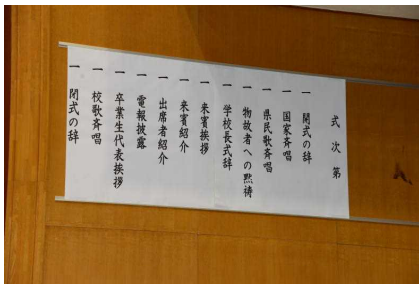 式次第
一 開式の辞
一 国家斉唱
一 県民歌斉唱
一 物故者への黙祷
一 学校長式辞
一 来賓挨拶
一 来賓紹介
一 出席者紹介
一 電報披露
一 卒業生代表挨拶
一 校歌斉唱
一 閉式の辞